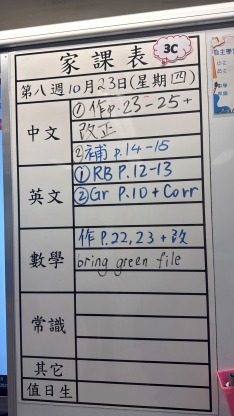 家課表
3C
第八週10月23日(星期四)
中文
①作p.23-25+
改正
②補 P.14-15
英文
①RB P.12-13
②Gr P.10+Corr
數學
作 P.22,23+改
bring green file
常識
其它
值日生